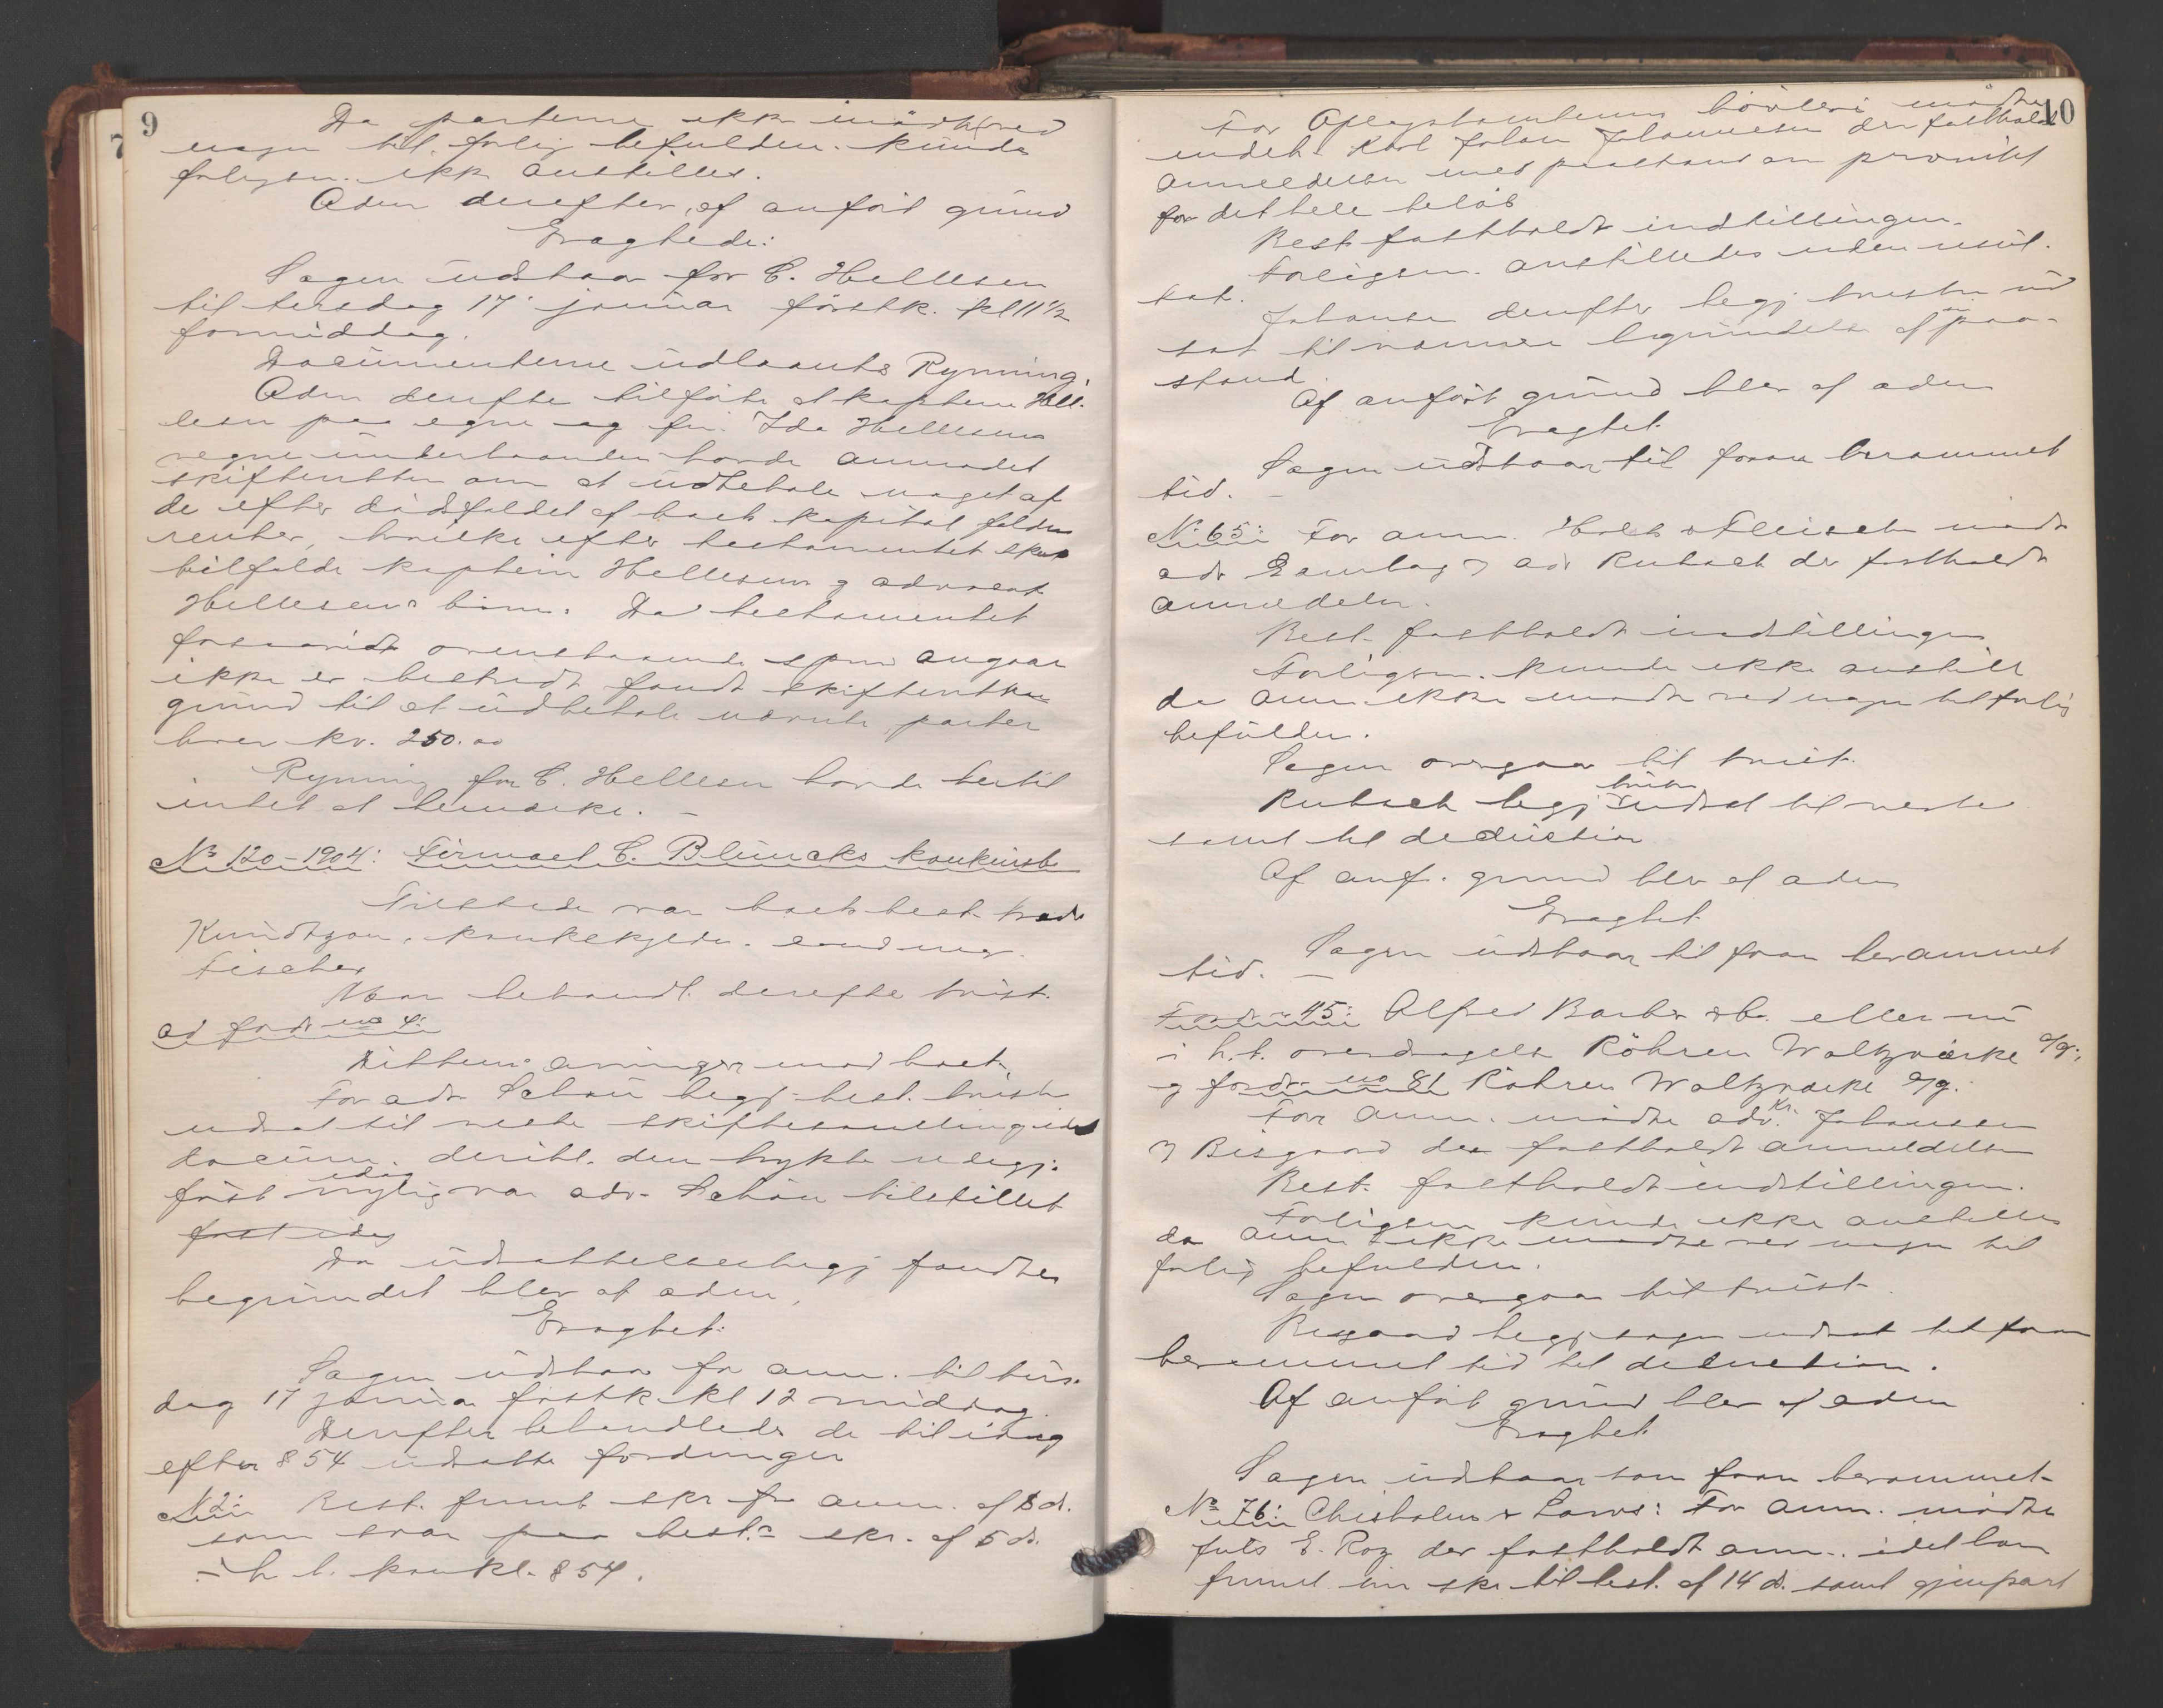 9
Da parterne ikke mødte med
nogen til forlig befulden. kunde
forligsm. ikke anstilles.
Adm derefter, af anført grund
Eragtede:
Sagen udstaar for C. Hellesen
til tirsdag 17 januar førstk. kl 11 1/2
formiddag.
Documenterne udlaante Rynning.
Adm derefter tilførte at kaptein Hel-
lesen paa egne og fru Ida Hellesens
vegne underhaanden havde anmodet
skifteretten om at udbetale noget af
de efter dødsfaldet af boets kapital faldne
renter, hvilke efter testamentet skal
tilfalde kaptein Hellesens og advocat
Hellesens børn. Da testamentet
forsaavidt ovenstaaende spm angaar
ikke er bestridt fandt skifteretten
grund til at udbetale nævnte parter
hver kr. 250.00
Rynning for C. Hellesen havde hertil
intet at bemærke. –
No 120-1904: Firmaet C. Blüncks konkursbo
Tilstede var boets best.
Knudtzon.
Fischer
Man behandl. derefter tvist.
ad fordr no 4:
mod boet.
For adv Schøu begj. best. tvisten
udsat til næste skiftesamling idet
docum. deribl. den trykte redegj.
først idag nylig var adv. Schøu tilstillet
først idag
Da udsættelsesbegj fandtes
begrundet blev af adm,
Eragtet:
Sagen udstaar for anm. til tirs-
dag 17 janua førstk kl 12 middag.
Derefter behandledes de til idag
efter § 54 udsatte fordringer
No 2: Best. freml skr fra anm. af 8 d.
som svar paa best.s skr. af 5 ds.
i h. t. konkl. § 54.
10
For møtte
endel. Karl Johan Johannesen der fastholdt
anmeldelsen med paastand om prioritet
for det hele beløb
Best fastholdt indstillingen.
Forligsm. anstilledes uden resul-
tat.
Johansen derefter begj tvisten ud
sat til nærmere begrundelse af paa-
stand.
Af anført grund blev af adm
Eragtet
Sagen udstaar til foran berammet
tid. –
No 65: For anm. Holst & Fleischer mødte
adv Dambog og adv Rubach der fastholdt
anmeldelsen.
Best. fastholdt indstillingen
Forligsm. kunde ikke anstilles
da anm ikke mødte ved nogen til forlig
befulden.
Sagen overgaar til tvist.
Rubach begj tvisten udsat til næste
saml til deduction
Af anf. grund blev af adm
Eragtet
Sagen udstaar til foran berammet
tid. –
Fordr no 45: Alfred Barber & Co. eller nu
i h. t. overdragelse Röhren Waltzwerke A/g.,
og fordr no 81 Röhren Waltzwerke A/g.
For anm. mødte adv. Kr. Johanssen
og Bisgaard der fastholdt anmeldelsen
Best. fastholdt indstillingen.
Forligsm kunde ikke anstilles
da anm ikke mødte ved nogen til
forlig befulden.
Sagen overgaar til tvist.
Bisgaard begj sagen udsat til foran
berammet tid til deduction.
Af anført grund blev af adm
Eragtet
Sagen udstaar som foran berammet-
No 76: Chisholm & Laws: For anm. mødte
fuldm E. Roz der fastholdt anm. idet han
freml sin skr til best. af 14 ds. samt gjenpart